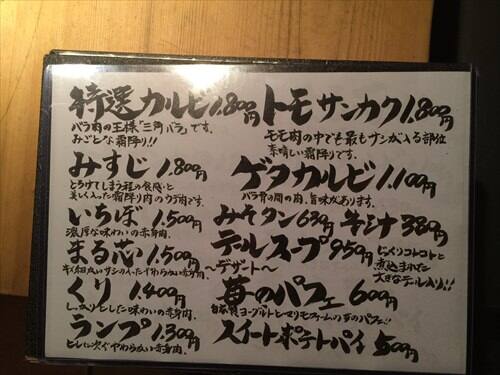 特選カルビ 1.800円
バラ肉の王様「三角バラ」です。
みごとな霜降り!!
みすじ 1.800円
とろけてしまう程の食感と
美しく入った霜降り肉のウデ肉です。
いちぼ 1.500円
濃厚な味わいの赤身肉。
まる芯 1.500円
キメ細かいサシの入ったやわらかい赤身肉。
くり 1.400円
しっかりとした味わいの赤身肉。
ランプ 1.300円
ヒレに次ぐやわらかい赤身肉。
トモサンカク 1.800円
モモ肉の中でも最もサシが入る部位
素晴しい霜降りです。
ゲタカルビ 1.100円
バラ骨の間の肉、旨味があります。
みそタン 630円 牛汁 380円
テールスープ 950円 じっくりコトコトと
煮込まれた
大きなテール入り!!
〜デザート〜
苺のパフェ 600円
自家製ヨーグルトとマリモファームの苺のパフェ!!
スイートポテトパイ 500円